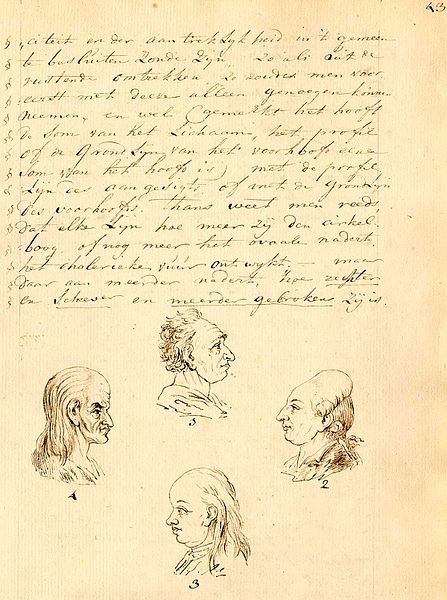 43
§ „citeit en der aantreklykheid in 't gemeen
§ te besluiten zonde zyn. Zo als uit de
§ rustende omtrekken, zo zoude men voor
§ eerst met deeze alleen genoegen können
§ neemen, en wel (gemerkt het hooft
§ de som van het Lichaam, het profil
§ of de Grondlyn van het voorhooft eene
§ som van het hoofd is) met de profil
§ Lyn des aangezigts, of met de Grondlyn
§ des voorhoofds. thans weet men reeds,
§ dat elke Lyn hoe meer zy den cirkel„
§ boog of nog meer het ovaale nadert,
§ het cholerieke vuur ontwykt – maar
§ daar aan meerder nadert, hoe regter
§ en Scheever en meerder gebroken zy is.
5
1
2
3